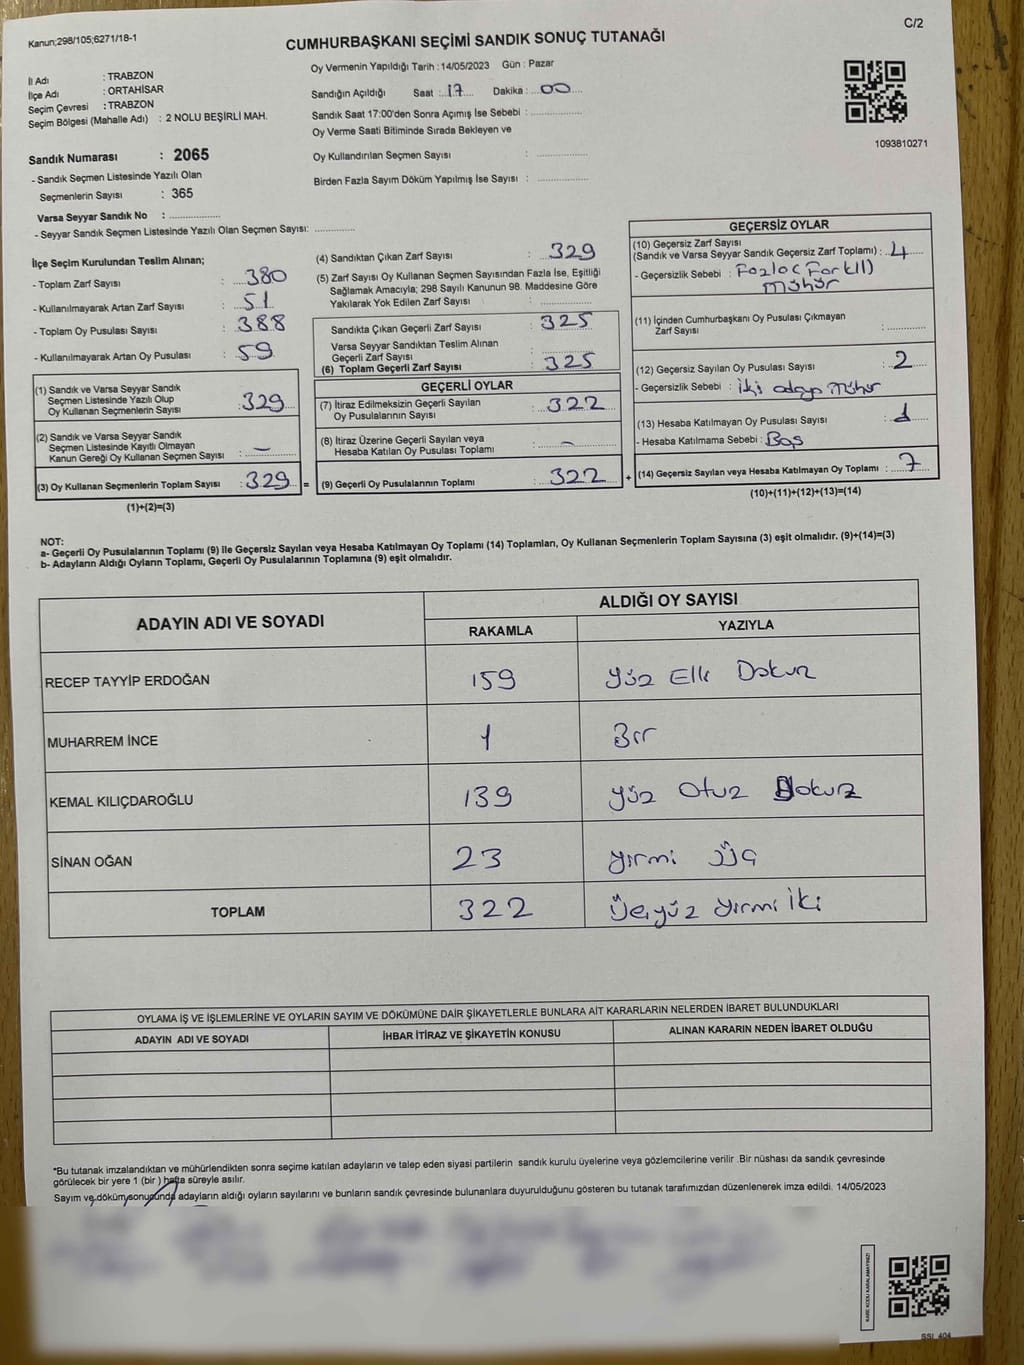 Kanun;298/105;6271/18-1
C/2
CUMHURBAŞKANI SEÇİMİ SANDIK SONUÇ TUTANAĞI
İl Adı : TRABZON
İlçe Adı : ORTAHİSAR
Seçim Çevresi : TRABZON
Seçim Bölgesi (Mahalle Adı) : 2 NOLU BEŞİRLİ MAH.
Sandık Numarası : 2065
- Sandık Seçmen Listesinde Yazılı Olan
Seçmenlerin Sayısı : 365
Varsa Seyyar Sandık No : ...................
- Seyyar Sandık Seçmen Listesinde Yazılı Olan Seçmen Sayısı: ..............
Oy Vermenin Yapıldığı Tarih : 14/05/2023 Gün : Pazar
Sandığın Açıldığı Saat : 17 Dakika : 00
Sandık Saat 17:00'den Sonra Açımış İse Sebebi : ..................
Oy Verme Saati Bitiminde Sırada Bekleyen ve
Oy Kullandırılan Seçmen Sayısı : ..................
Birden Fazla Sayım Döküm Yapılmış İse Sayısı : ..................
1093810271
İlçe Seçim Kurulundan Teslim Alınan;
- Toplam Zarf Sayısı : 380
- Kullanılmayarak Artan Zarf Sayısı : 51
- Toplam Oy Pusulası Sayısı : 388
- Kullanılmayarak Artan Oy Pusulası : 59
(1) Sandık ve Varsa Seyyar Sandık
Seçmen Listesinde Yazılı Olup
Oy Kullanan Seçmenlerin Sayısı : 329
(2) Sandık ve Varsa Seyyar Sandık
Seçmen Listesinde Kayıtlı Olmayan
Kanun Gereği Oy Kullanan Seçmen Sayısı : -
(3) Oy Kullanan Seçmenlerin Toplam Sayısı : 329 =
(1)+(2)=(3)
(4) Sandıktan Çıkan Zarf Sayısı : 329
(5) Zarf Sayısı Oy Kullanan Seçmen Sayısından Fazla İse, Eşitliği
Sağlamak Amacıyla; 298 Sayılı Kanunun 98. Maddesine Göre
Yakılarak Yok Edilen Zarf Sayısı : ..................
Sandıkta Çıkan Geçerli Zarf Sayısı : 325
Varsa Seyyar Sandıktan Teslim Alınan
Geçerli Zarf Sayısı : ..................
(6) Toplam Geçerli Zarf Sayısı : 325
GEÇERLİ OYLAR
(7) İtiraz Edilmeksizin Geçerli Sayılan
Oy Pusulalarının Sayısı : 322
(8) İtiraz Üzerine Geçerli Sayılan veya
Hesaba Katılan Oy Pusulası Toplamı : -
(9) Geçerli Oy Pusulalarının Toplamı : 322 +
GEÇERSİZ OYLAR
(10) Geçersiz Zarf Sayısı
(Sandık ve Varsa Seyyar Sandık Geçersiz Zarf Toplamı) : 4
- Geçersizlik Sebebi :
mühür
(11) İçinden Cumhurbaşkanı Oy Pusulası Çıkmayan
Zarf Sayısı : ............
(12) Geçersiz Sayılan Oy Pusulası Sayısı : 2
- Geçersizlik Sebebi : iki aday mühür
(13) Hesaba Katılmayan Oy Pusulası Sayısı : 1
- Hesaba Katılmama Sebebi : Boş
(14) Geçersiz Sayılan veya Hesaba Katılmayan Oy Toplamı : 7
(10)+(11)+(12)+(13)=(14)
NOT:
a- Geçerli Oy Pusulalarının Toplamı (9) ile Geçersiz Sayılan veya Hesaba Katılmayan Oy Toplamı (14) Toplamları, Oy Kullanan Seçmenlerin Toplam Sayısına (3) eşit olmalıdır. (9)+(14)=(3)
b- Adayların Aldığı Oyların Toplamı, Geçerli Oy Pusulalarının Toplamına (9) eşit olmalıdır.
ADAYIN ADI VE SOYADI
ALDIĞI OY SAYISI
RAKAMLA YAZIYLA
RECEP TAYYİP ERDOĞAN 159 Yüz Elli Dokuz
MUHARREM İNCE 1 Bir
KEMAL KILIÇDAROĞLU 139 Yüz Otuz Dokuz
SİNAN OĞAN 23 Yirmi Üç
TOPLAM 322 Üçyüz Yirmi İki
OYLAMA İŞ VE İŞLEMLERİNE VE OYLARIN SAYIM VE DÖKÜMÜNE DAİR ŞİKAYETLERLE BUNLARA AİT KARARLARIN NELERDEN İBARET BULUNDUKLARI
ADAYIN ADI VE SOYADI İHBAR İTİRAZ VE ŞİKAYETİN KONUSU ALINAN KARARIN NEDEN İBARET OLDUĞU
*Bu tutanak imzalandıktan ve mühürlendikten sonra seçime katılan adayların ve talep eden siyasi partilerin sandık kurulu üyelerine veya gözlemcilerine verilir .Bir nüshası da sandık çevresinde
görülecek bir yere 1 (bir ) hafta süreyle asılır.
Sayım ve dökümsonucunda adayların aldığı oyların sayılarını ve bunların sandık çevresinde bulunanlara duyurulduğunu gösteren bu tutanak tarafımızdan düzenlenerek imza edildi. 14/05/2023
KARE KODU KARALAMAYINIZ!
SSI_404